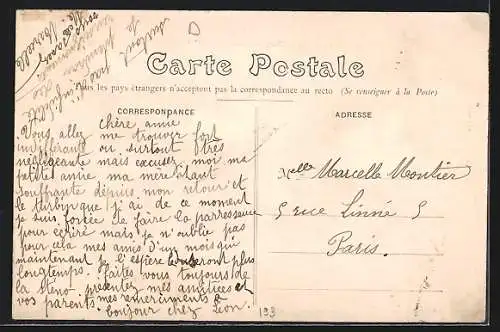 D
Carte Postale
Tous les pays étrangers n'acceptent pas la correspondance au recto (Se renseigner à la Poste)
CORRESPONDANCE
ADRESSE
chère amie
Vous allez me trouver fort
indifférante ou surtout très
négligeante mais excusez moi ma
petite amie ma mère étant
souffrante depuis mon retour et
le turbin que j'ai de ce moment
je suis forcée de faire la parresseuse
pour écrire mais je n'oublie pas
pour cela mes amis d'un mois qui
maintenant je l'espère dureront plus
longtemps. Faites vous toujours de
la steno. présentez mes amitiées et
vos parents. mes remerciments à
bonjour chez Léon.
Melle Marcelle Montier
5 rue Linné 5
Paris.
193